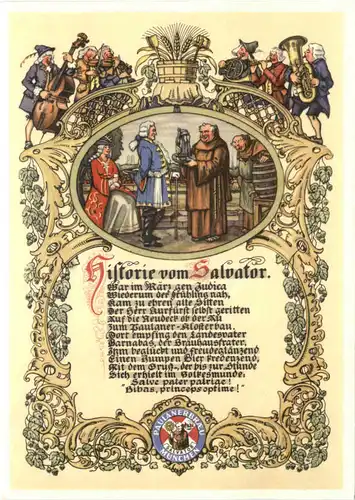 Historie vom Salvator.
War im März gen Judica
Wiederum der Frühling nah,
Kam zu ehren alte Sitten
Der Herr Kurfürst selbst geritten
Auf die Neudeck ob der Au
Zum Paulaner-Klosterbau.
Dort empfing den Landesvater
Barnabas, der Brauhausfrater,
Ihm beglückt und freudeglänzend
Einen Humpen Bier kredenzend,
Mit dem Gruß, der bis zur Stunde
Sich erhielt im Volkesmunde:
"Salve pater patriae!
Bibas, princeps optime!"
PAULANERBRÄU
SALVATOR
MÜNCHEN